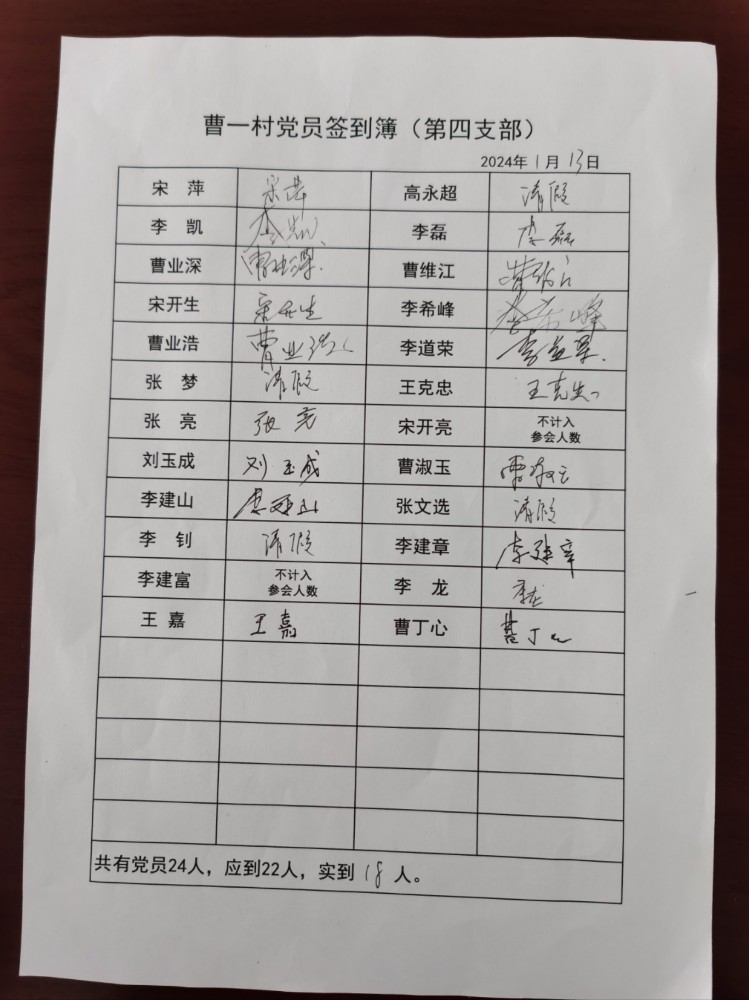 曹一村党员签到簿（第四支部）
2024年1月13日
宋 萍 宋萍 高永超 请假
李 凯 李凯 李磊 李磊
曹业深 曹业深 曹维江 曹维江
宋开生 宋开生 李希峰 李希峰
曹业浩 曹业浩 李道荣 李道荣
张 梦 请假 王克忠 王克忠
张 亮 张亮 宋开亮 不计入
参会人数
刘玉成 刘玉成 曹淑玉 曹淑玉
李建山 李建山 张文选 请假
李 钊 请假 李建章 李建章
李建富 不计入
参会人数 李 龙 李龙
王 嘉 王嘉 曹丁心 曹丁心
共有党员24人，应到22人，实到18人。